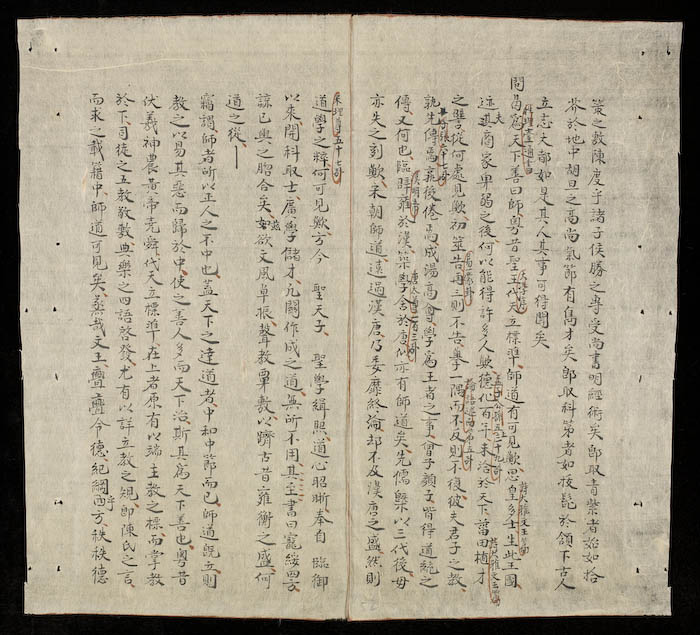 策之數陳度子諸子侯勝之專受尚書明經術矣郎取青紫者始如拾
芥於地中胡旦之高尚氣節有雋才矣郎取科第者如拔髭於頷下古人
立志大都如是其人其事可得聞矣
問曷為天下善曰師粵昔聖王代天立標準師道有可見歟思皇多士生此王國
夫商家卑弱之後何以能得許多人歟德化百年未洽於天下當因植才
之譬從何處見歟初筮告再三則不告舉一隅而不反則不復彼夫君子之教
孰先傳焉孰後倦焉成湯高會學為王者之事曾子顏子皆得道統之
傳又何也臨拜雍於漢築學舍於唐似亦有師道矣先儒槩以三代後毋
亦失之刻歟宋朝師道遠過漢唐乃委靡終淪却不及漢唐之盛然則
道學之粹何可見歟方今 聖天子 聖學緝熙道心昭晰奉自 臨御
以來開科取士廣學儲才凡關作成之道無所不用其至書曰寵綏四方
諒已與之脗合矣茲欲文風卓振聲教覃敷以躋古昔雍熙之盛何
道之從
竊謂師者所以正人之不中也蓋天下之達道者中和中節而已師道既立則
教之以易其惡而歸於中使之善人多而天下治斯其為天下善也粵昔
伏羲神農黃帝堯舜代天立標準在上者原有以端主教之標而掌教
於下司徒之五教敬敷典樂之四語啓發尤有以詳立教之規即陳氏之言
而求之載籍中師道可見矣蒸哉文王亹亹令德紀綱乎四方秩秩德